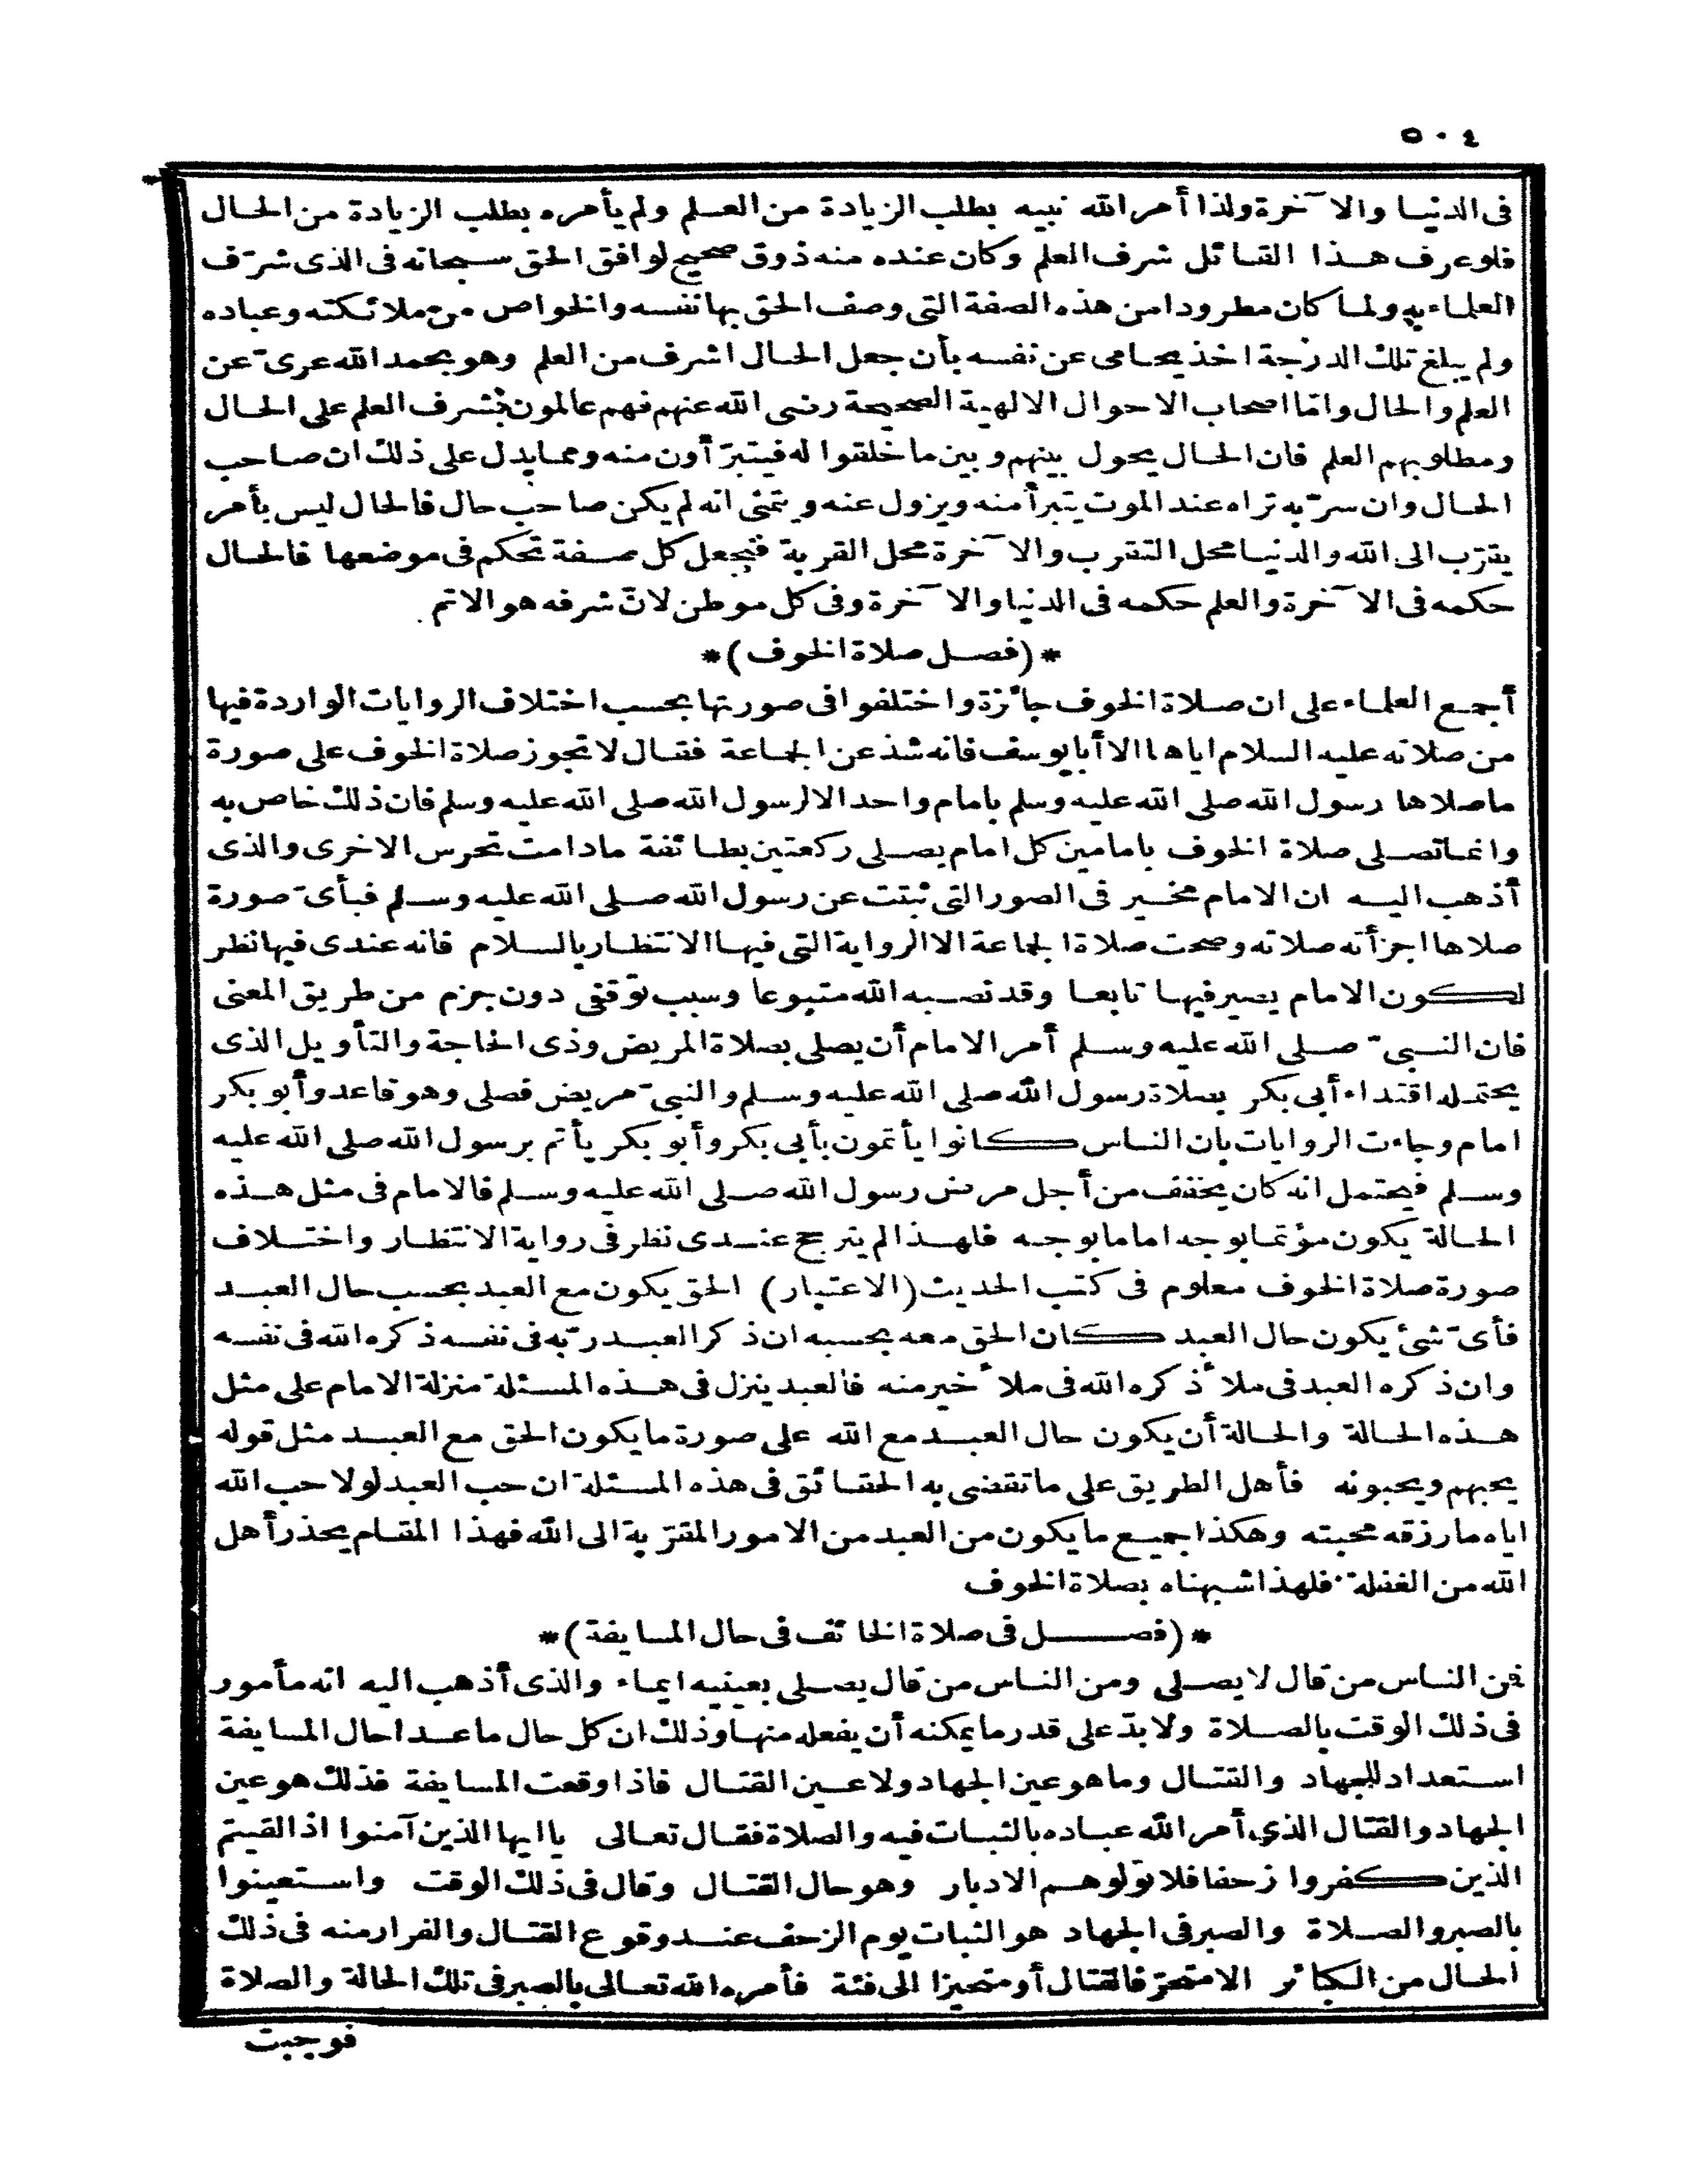 ٥٠٤
فى الدنيا والآخرة ولذا أمر الله نبيه بطلب الزيادة من العلم ولم يأمره بطلب الزيادة من الحال
فلو عرف هذا القائل شرف العلم وكان عنده منه ذوق صحيح لوافق الحق سبحانه فى الذى شرّف
العلماء به ولما كان مطرودا من هذه الصفة التى وصف الحق بها نفسه والخواص من ملائكته وعباده
ولم يبلغ تلك الدرجة اخذ يحامى عن نفسه بأن جعل الحال اشرف من العلم وهو بحمد الله عرىّ عن
العلم والحال وامّا اصحاب الاحوال الالهية الصحيحة رضى الله عنهم فهم عالمون بشرف العلم على الحال
ومطلوبهم العلم فان الحال يحول بينهم وبين ما خلقوا له فيتبرّأون منه ومما يدل على ذلك ان صاحب
الحال وان سرّ به تراه عند الموت يتبرأ منه ويزول عنه ويتمنى انه لم يكن صاحب حال فالحال ليس بأمر
يقرّب الى الله والدنيا محل التقرب والآخرة محل القربة فيجعل كل صفة تحكم فى موضعها فالحال
حكمه فى الآخرة والعلم حكمه فى الدنيا والآخرة وفى كل موطن لانّ شرفه هو الاتم
*(فصل صلاة الخوف)*
أجمع العلماء على ان صلاة الخوف جائزة واختلفوا فى صورتها بحسب اختلاف الروايات الواردة فيها
من صلاته عليه السلام اياها الا أبا يوسف فانه شذ عن الجماعة فقال لا تجوز صلاة الخوف على صورة
ما صلاها رسول الله صلى الله عليه وسلم بامام واحد الا لرسول الله صلى الله عليه وسلم فان ذلك خاص به
وانما تصلى صلاة الخوف بامامين كل امام يصلى ركعتين بطائفة مادامت تحرس الاخرى والذى
أذهب اليه ان الامام مخير فى الصور التى ثبتت عن رسول الله صلى الله عليه وسلم فبأىّ صورة
صلاها اجزأته صلاته وصحت صلاة الجماعة الا الرواية التى فيها الانتظار بالسلام فانه عندى فيها نظر
لكون الامام يصير فيها تابعا وقد نصبه الله متبوعا وسبب توقفى دون جزم من طريق المعنى
فان النبىّ صلى الله عليه وسلم أمر الامام أن يصلى بصلاة المريض وذى الحاجة والتأويل الذى
يحتمله اقتداء أبى بكر بصلاة رسول الله صلى الله عليه وسلم والنبىّ مريض فصلى وهو قاعد وأبو بكر
امام وجاءت الروايات بان الناس كانوا يأتمون بأبى بكر وأبو بكر يأتم برسول الله صلى الله عليه
وسلم فيحتمل انه كان يخفف من أجل مرض رسول الله صلى الله عليه وسلم فالامام فى مثل هذه
الحالة يكون مؤتما بوجه اماما بوجه فلهذا لم يترجح عندى نظر فى رواية الانتظار واختلاف
صورة صلاة الخوف معلوم فى كتب الحديث (الاعتبار) الحق يكون مع العبد بحسب حال العبد
فأىّ شئ يكون حال العبد كان الحق معه بحسبه ان ذكر العبد ربّه فى نفسه ذكره الله فى نفسه
وان ذكره العبد فى ملأ ذكره الله فى ملأ خير منه فالعبد ينزل فى هذه المسئلة منزلة الامام على مثل
هذه الحالة والحالة أن يكون حال العبد مع الله على صورة ما يكون الحق مع العبد مثل قوله
يحبهم ويحبونه فأهل الطريق على ما تقضى به الحقائق فى هذه المسئلة ان حب العبد لولا حب الله
اياه ما رزقه محبته وهكذا جميع ما يكون من العبد من الامور المقرّبة الى الله فهذا المقام يحذر أهل
الله من الغفلة فلهذا شبهناه بصلاة الخوف
*(فصل فى صلاة الخائف فى حال المسايفة)*
فمن الناس من قال لا يصلى ومن الناس من قال يصلى بعينيه ايماء والذى أذهب اليه انه مأمور
فى ذلك الوقت بالصلاة ولا بدّ على قدر ما يمكنه أن يفعله منها وذلك ان كل حال ما عدا حال المسايفة
استعداد للجهاد والقتال وما هو عين الجهاد ولا عين القتال فاذا وقعت المسايفة فذلك هو عين
الجهاد والقتال الذى أمر الله عباده بالثبات فيه والصلاة فقال تعالى يا ايها الذين آمنوا اذا لقيتم
الذين كفروا زحفا فلا تولوهم الادبار وهو حال القتال وقال فى ذلك الوقت واستعينوا
بالصبر والصلاة والصبر فى الجهاد هو الثبات يوم الزحف عند وقوع القتال والفرار منه فى ذلك
الحال من الكبائر الا متحرّفا لقتال أو متحيزا الى فئة فأمره الله تعالى بالصبر فى تلك الحالة والصلاة
فوجبت